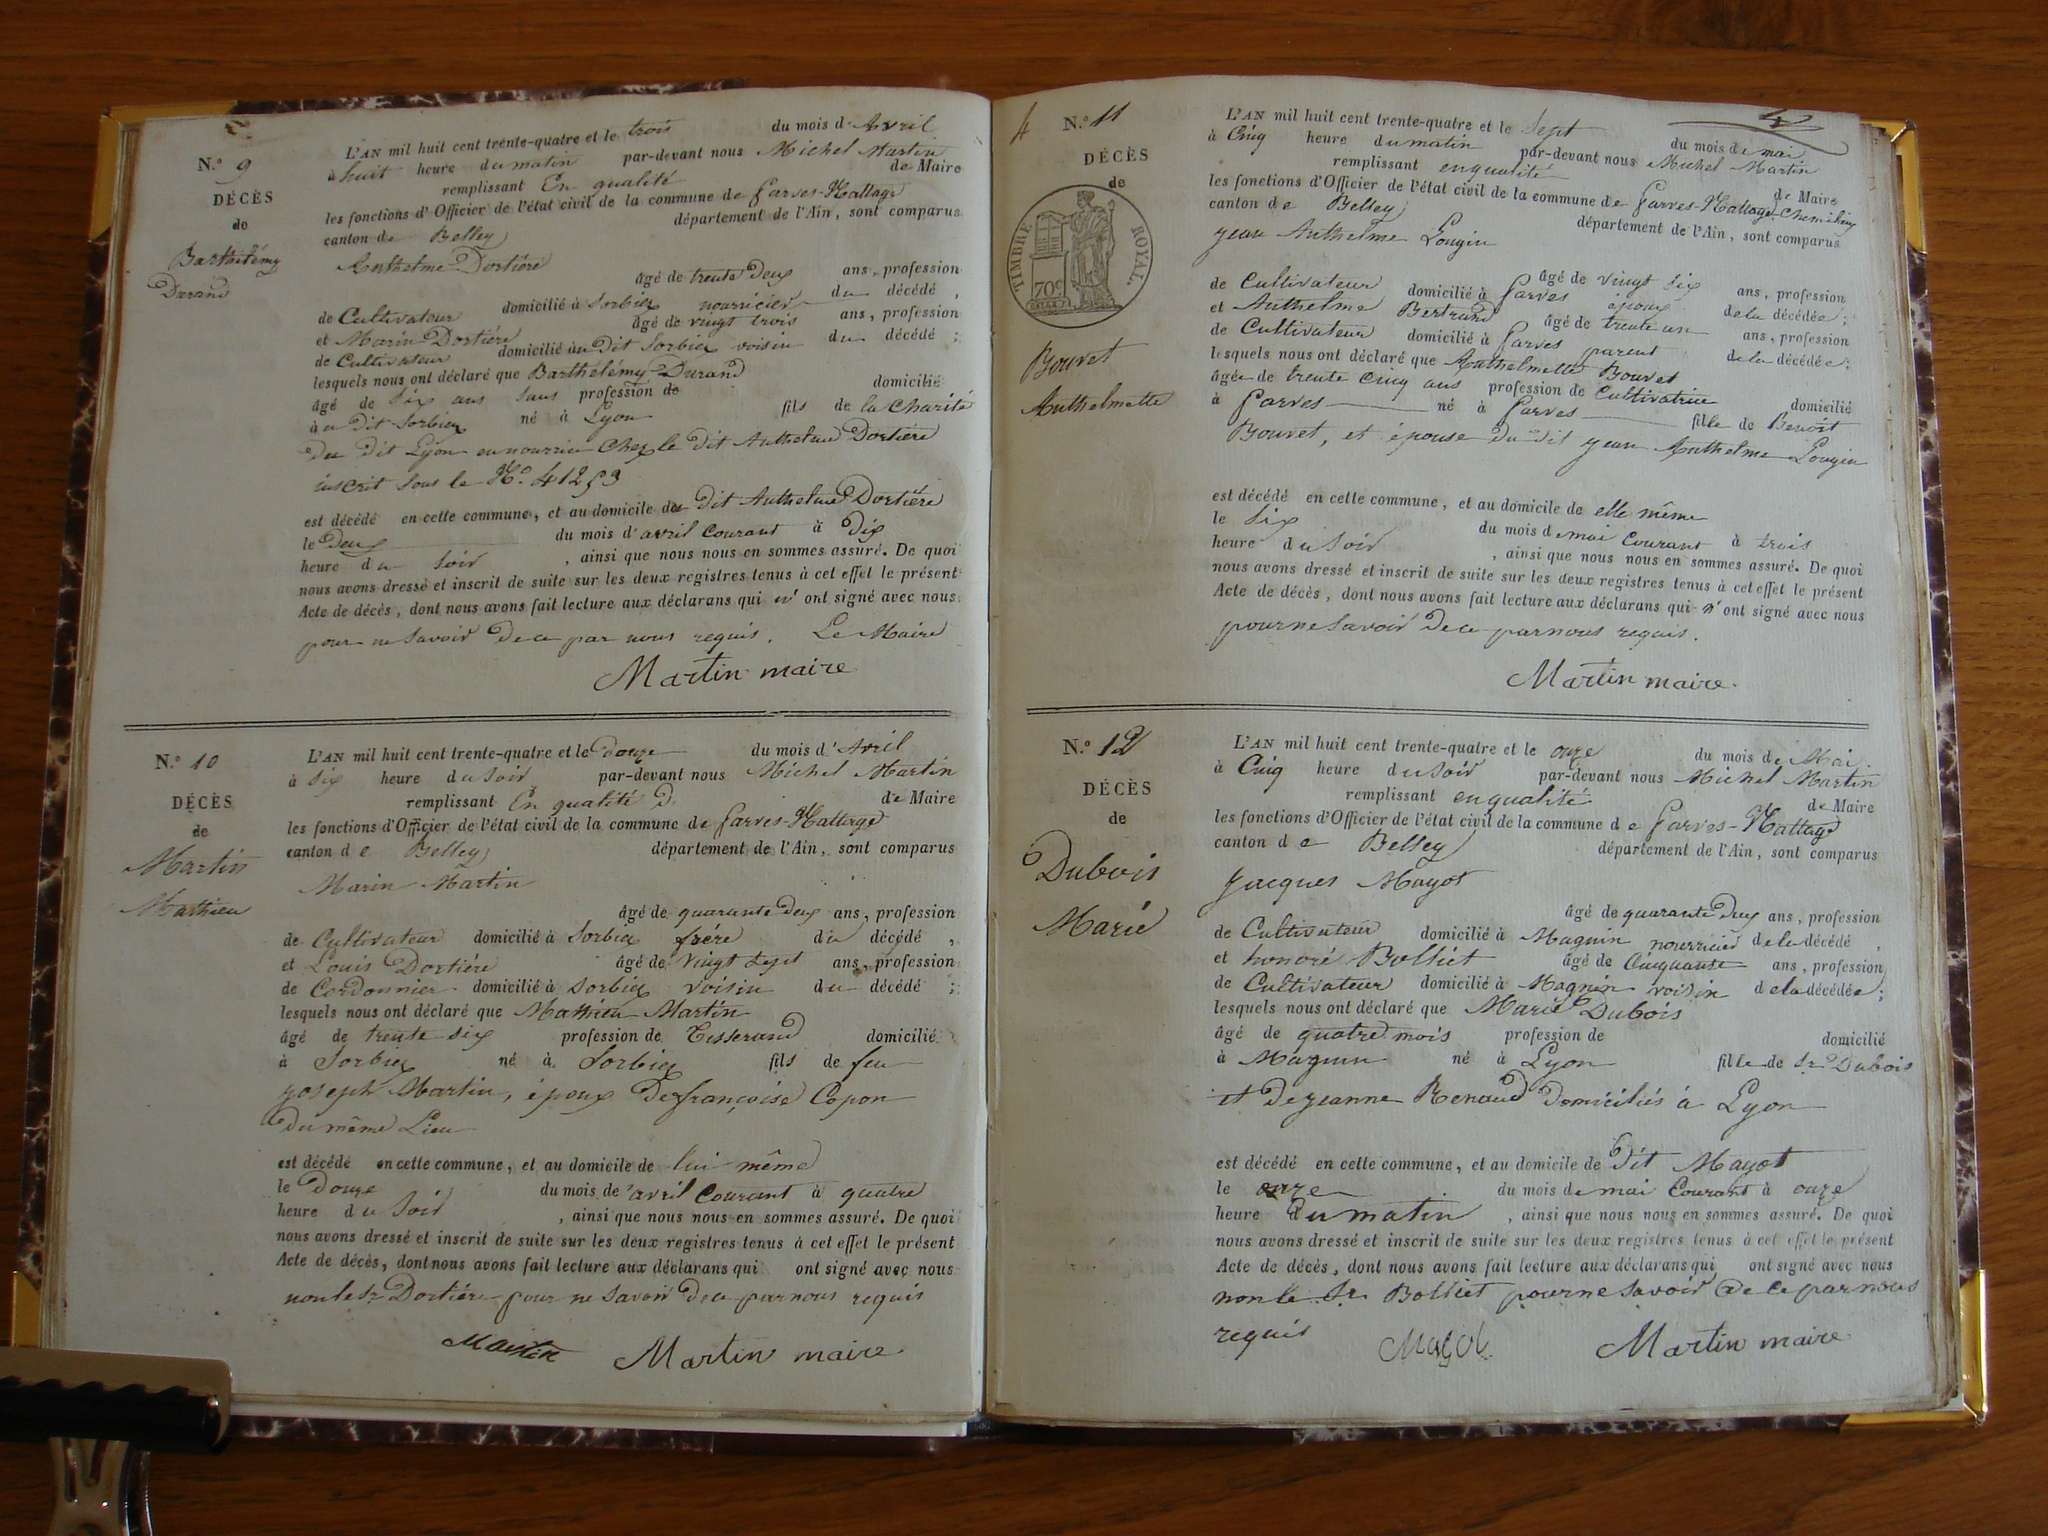 N.° 9
DÉCÈS
de
Barthélémy
Durand
L'AN mil huit cent trente-quatre et le trois du mois d'Avril
à huit heure du matin par-devant nous Michel Martin
remplissant En qualité de Maire
les fonctions d'Officier de l'état civil de la commune de Parves-Nattage
canton de Belley département de l'Ain, sont comparus
Anthelme Dortière
âgé de trente deux ans, profession
de Cultivateur domicilié à Sorbier nourricier du décédé,
et Marin Dortière âgé de vingt trois ans, profession
de Cultivateur domicilié au Dit Sorbier voisin du décédé;
lesquels nous ont déclaré que Barthélémy Durand
âgé de Six ans Sans profession de domicilié
à u Dit Sorbier né à Lyon fils de la Charité
du dit Lyon en nourrice Chez le dit Anthelme Dortière
inscrit sous le N.° 41253
est décédé en cette commune, et au domicile du Dit Anthelme Dortière
le Deux du mois d'avril Courant à Dix
heure du Soir, ainsi que nous nous en sommes assuré. De quoi
nous avons dressé et inscrit de suite sur les deux registres tenus à cet effet le présent
Acte de décès, dont nous avons fait lecture aux déclarans qui n'ont signé avec nous
pour ne Savoir De ce par nous requis. Le Maire
Martin maire
N.° 10
DÉCÈS
de
Martin
Mathieu
L'AN mil huit cent trente-quatre et le Douze du mois d'Avril
à Six heure du Soir par-devant nous Michel Martin
remplissant En qualité D. de Maire
les fonctions d'Officier de l'état civil de la commune de Parves-Nattage
canton de Belley département de l'Ain, sont comparus
Marin Martin
âgé de quarante Deux ans, profession
de Cultivateur domicilié à Sorbier frére du décédé,
et Louis Dortiére âgé de Vingt Sept ans, profession
de Cordonnier domicilié à Sorbier Voisin du décédé;
lesquels nous ont déclaré que Mathieu Martin
âgé de trente Six profession de Tisserand domicilié
à Sorbier né à Sorbier fils de feu
Joseph Martin, époux De françoise Copon
du même Lieu
est décédé en cette commune, et au domicile de lui même
le Douze du mois de avril Courant à quatre
heure du Soir, ainsi que nous nous en sommes assuré. De quoi
nous avons dressé et inscrit de suite sur les deux registres tenus à cet effet le présent
Acte de décès, dont nous avons fait lecture aux déclarans qui ont signé avec nous
non le Sr Dortiére pour ne Savoir De ce par nous requis
Martin Martin maire
4 N.° 11
DÉCÈS
de
TIMBRE ROYAL
70c
Bouvet
Anthelmette
4
L'AN mil huit cent trente-quatre et le Sept du mois de mai
à Cinq heure du matin par-devant nous Michel Martin
remplissant en qualité de Maire
les fonctions d'Officier de l'état civil de la commune de Parves-Nattage
canton de Belley département de l'Ain, sont comparus
Jean Anthelme Lougin
âgé de vingt Six ans, profession
de Cultivateur domicilié à Parves époux de la décédée;
et Anthelme Bertrand âgé de trente un ans, profession
de Cultivateur domicilié à Parves parent de la décédée;
lesquels nous ont déclaré que Anthelmette Bouvet
âgée de trente Cinq ans profession de Cultivatrice domicilié
à Parves né à Parves fille de Benoît
Bouvet, et épouse du dit Jean Anthelme Lougin
est décédé en cette commune, et au domicile de elle même
le Six du mois de mai Courant à trois
heure du Soir, ainsi que nous nous en sommes assuré. De quoi
nous avons dressé et inscrit de suite sur les deux registres tenus à cet effet le présent
Acte de décès, dont nous avons fait lecture aux déclarans qui n'ont signé avec nous
pour ne Savoir De ce par nous requis.
Martin maire.
N.° 12
DÉCÈS
de
Dubois
Marie
L'AN mil huit cent trente-quatre et le onze du mois de Mai.
à Cinq heure du Soir par-devant nous Michel Martin
remplissant en qualité de Maire
les fonctions d'Officier de l'état civil de la commune de Parves-Nattage
canton de Belley département de l'Ain, sont comparus
Jacques Magot
âgé de quarante Deux ans, profession
de Cultivateur domicilié à Magnin nourricier de la décédé,
et honoré Bolliet âgé de Cinquante ans, profession
de Cultivateur domicilié à Magnin voisin de la décédée;
lesquels nous ont déclaré que Marie Dubois
âgé de quatre mois profession de domicilié
à Magnin né à Lyon fille de Sr Dubois
et De Jeanne Renaud Domiciliés à Lyon
est décédé en cette commune, et au domicile de Dit Magot
le onze du mois de mai Courant à onze
heure du matin, ainsi que nous nous en sommes assuré. De quoi
nous avons dressé et inscrit de suite sur les deux registres tenus à cet effet le présent
Acte de décès, dont nous avons fait lecture aux déclarans qui ont signé avec nous
non le Sr Bolliet pour ne Savoir de ce par nous
requis Magot Martin maire